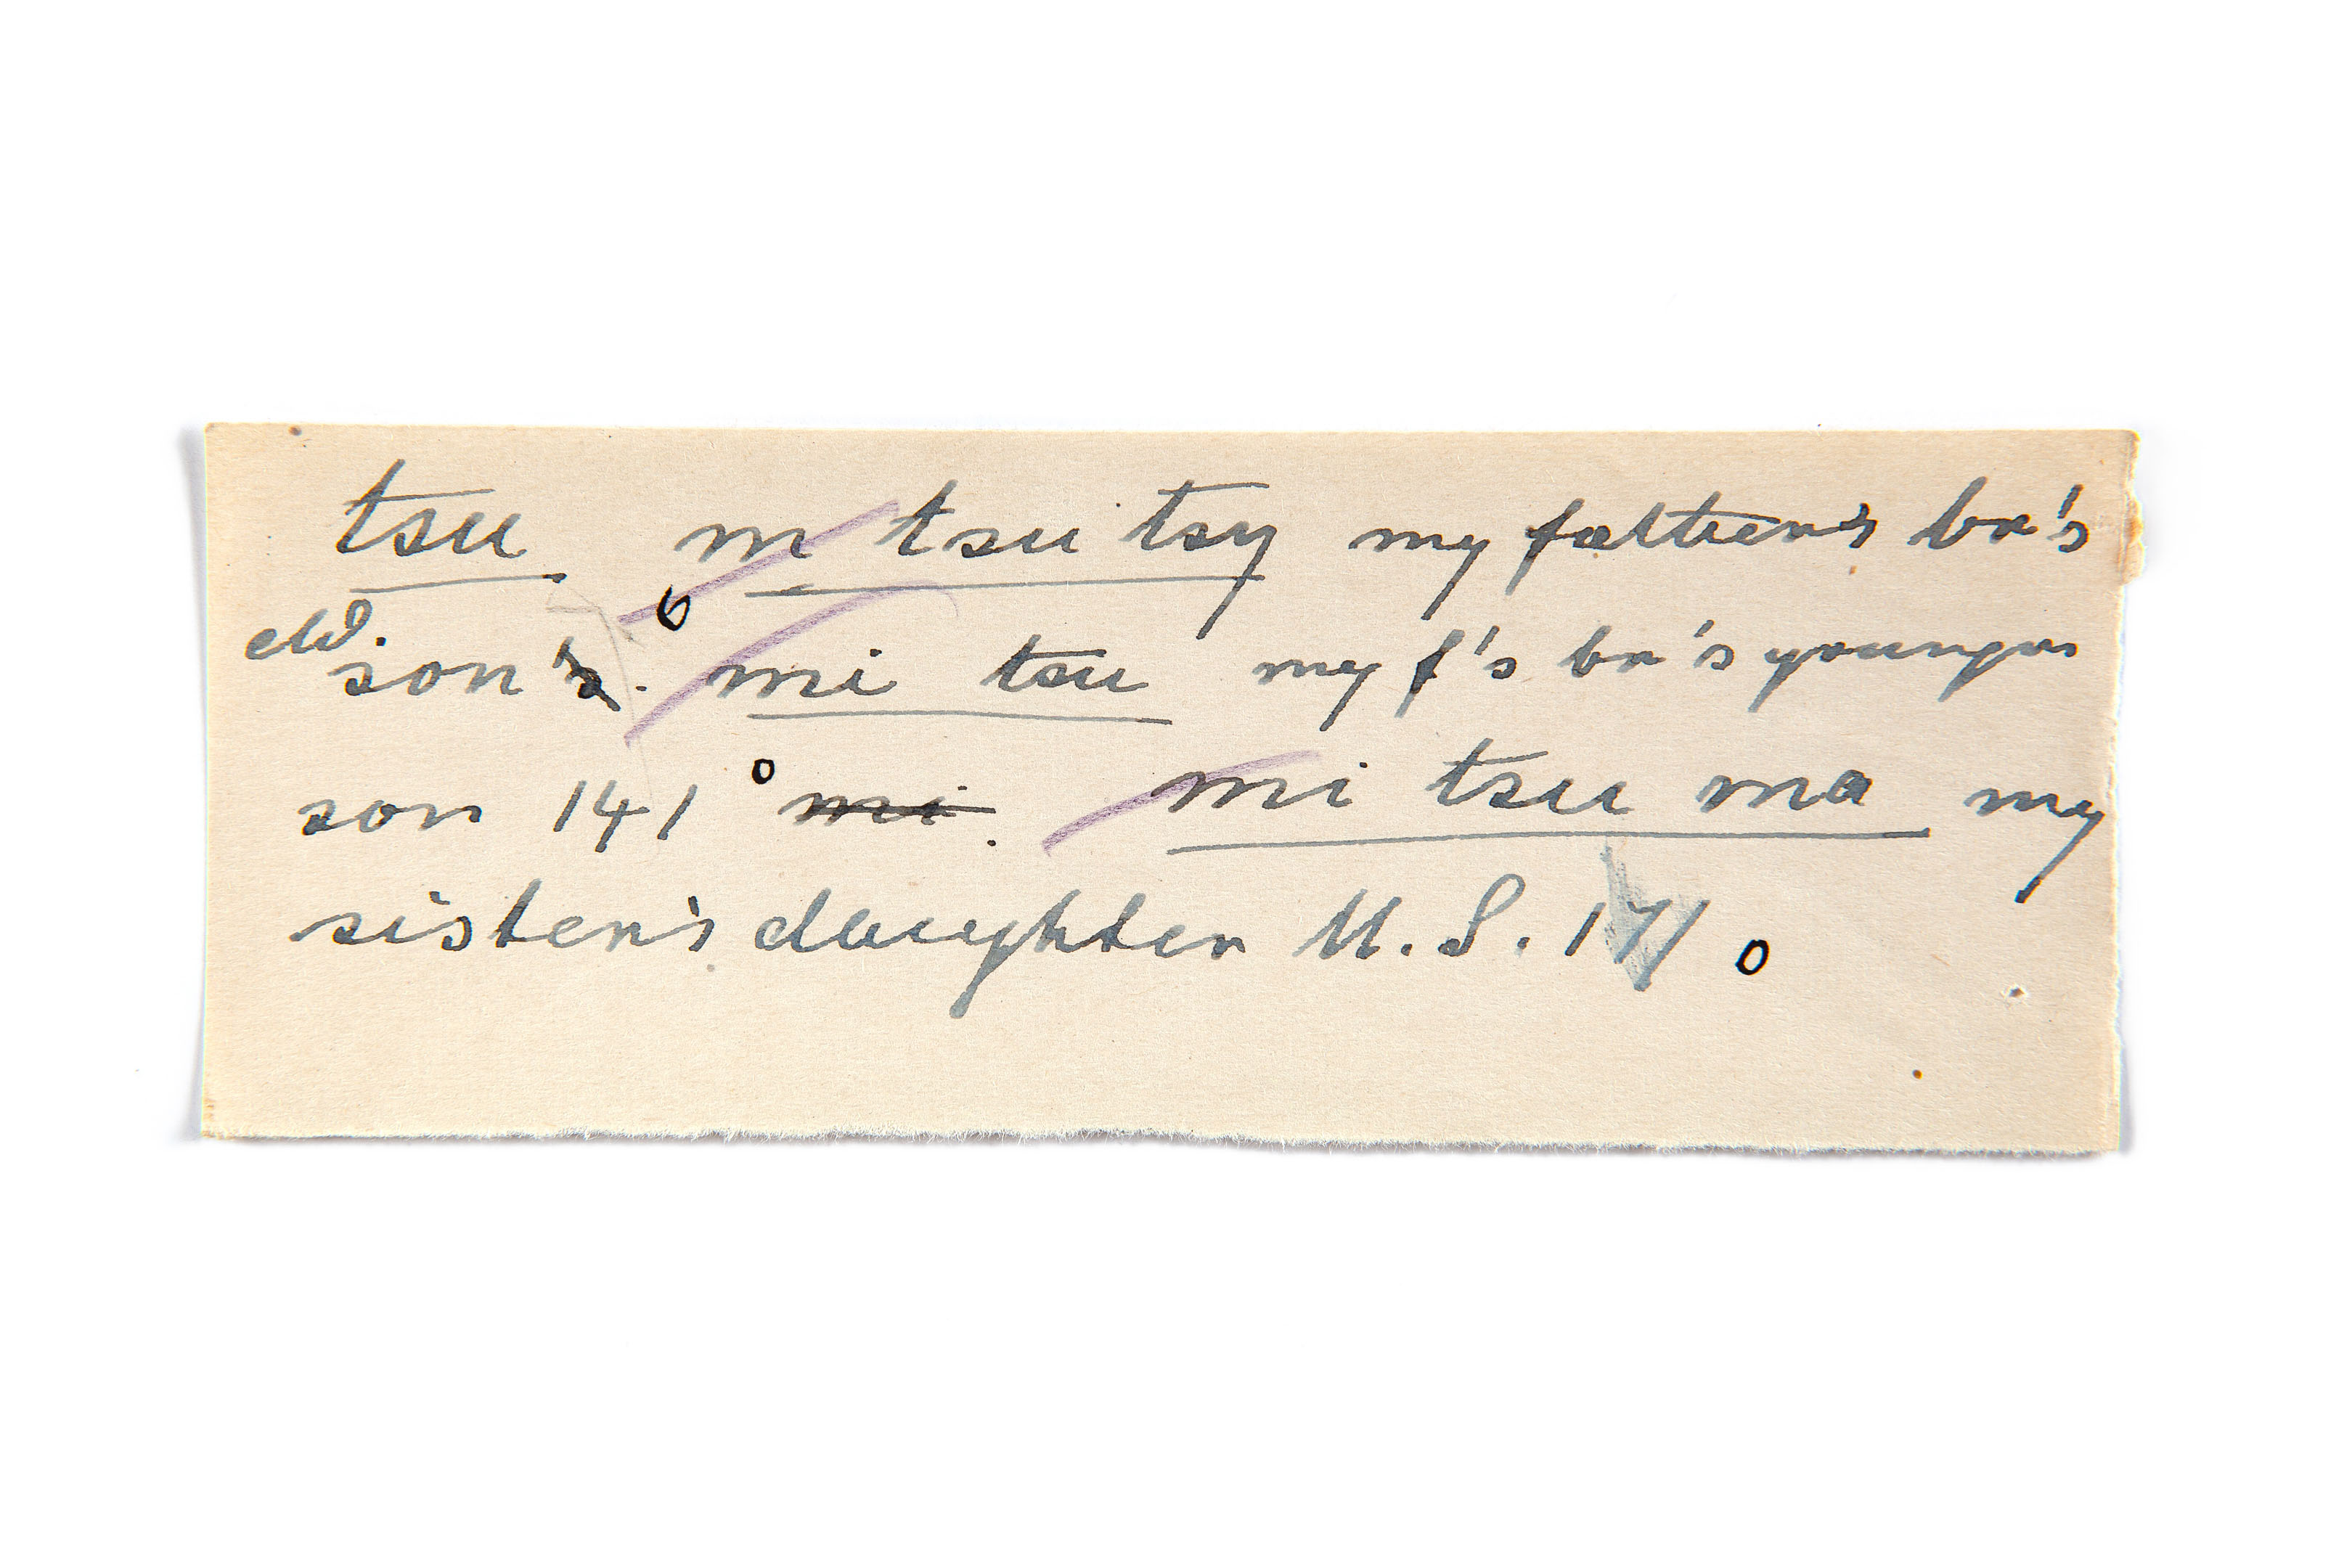 tsu m tsu tsy my father's br's
eld.
son's. mi tsu my f's br's younger
son 141 mi. mi tsu ma my
sister's daughter M.S. 171